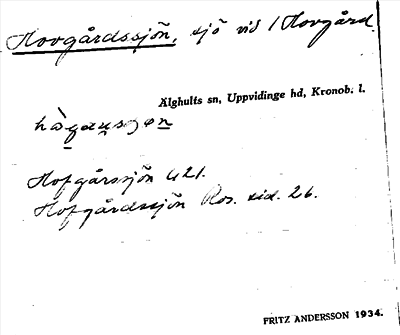 Hovgårdssjön, sjö vid 1 Hovgård.
Älghults sn, Uppvidinge hd, Kronob. l.
Hofgårsjön U21.
Hofgårdssjön Ros. sid. 26.
FRITZ ANDERSSON 1934.